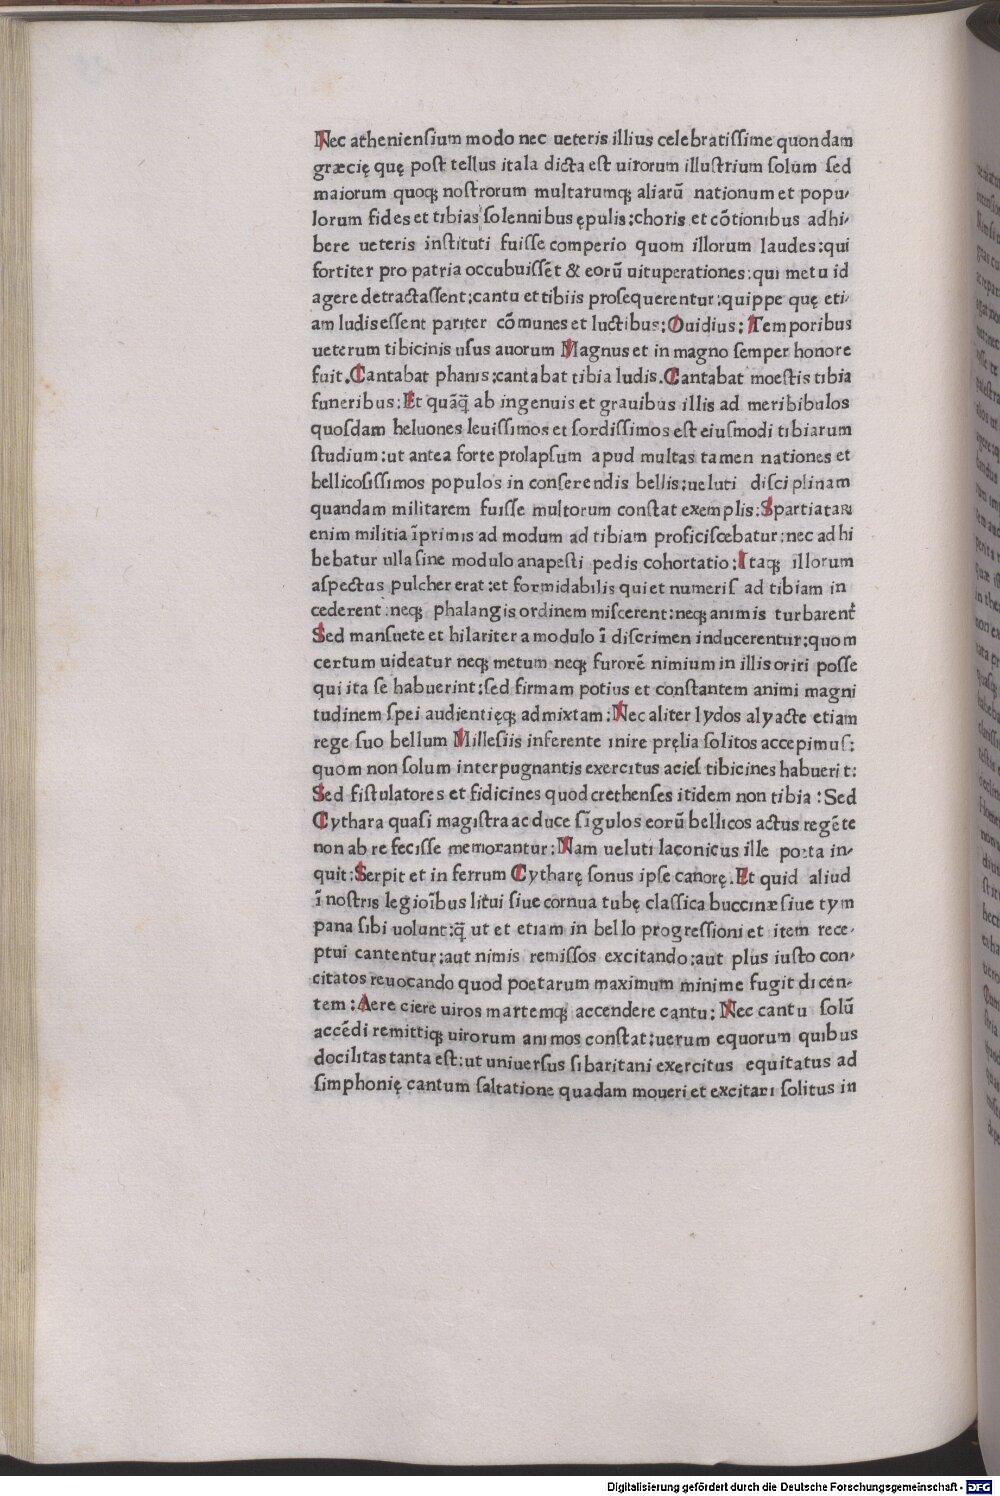 Nec athenienſium modo nec ueteris illius celebratiſſime quondam
græcię quę poſt tellus itala dicta eſt uirorum illuſtrium ſolum ſed
maiorum quoqȝ noſtrorum multarumqȝ aliarū nationum et popu-
lorum fides et tibias ſolennibus ępulis: choris et cōtionibus adhi-
bere ueteris inſtituti fuiſſe comperio quom illorum laudes: qui
fortiter pro patria occubuiſſēt & eorū uituperationes: qui metu id
agere detractaſſent: cantu et tibiis proſequerentur: quippe quę eti-
am ludis eſſent pariter cōmunes et luctibus: Ouidius: Temporibus
ueterum tibicinis uſus auorum Magnus et in magno ſemper honore
fuit. Cantabat phanis: cantabat tibia ludis. Cantabat moeſtis tibia
funeribus: Et quāq̄ ab ingenuis et grauibus illis ad meribibulos
quoſdam heluones leuiſſimos et ſordiſſimos eſt eiuſmodi tibiarum
ſtudium: ut antea forte prolapſum apud multas tamen nationes et
bellicoſiſſimos populos in conſerendis bellis: ueluti diſciplinam
quandam militarem fuiſſe multorum conſtat exemplis: Spartiataꝝ
enim militia īprimis ad modum ad tibiam proficiſcebatur: nec adhi
bebatur ulla ſine modulo anapeſti pedis cohortatio: Itaqȝ illorum
aſpectus pulcher erat: et formidabilis qui et numeriſ ad tibiam in
cederent: neqȝ phalangis ordinem miſcerent: neqȝ animis turbarent̄
Sed manſuete et hilariter a modulo ī diſcrimen inducerentur: quom
certum uideatur neqȝ metum neqȝ furorē nimium in illis oriri poſſe
qui ita ſe habuerint: ſed firmam potius et conſtantem animi magni
tudinem ſpei audientięqȝ admixtam: Nec aliter lydos alyacte etiam
rege ſuo bellum Milleſiis inferente inire pręlia ſolitos accepimuſ:
quom non ſolum interpugnantis exercitus acieſ tibicines habuerit:
Sed fiſtulatores et fidicines quod crethenſes itidem non tibia: Sed
Cythara quaſi magiſtra ac duce ſīgulos eorū bellicos actus regēte
non ab re feciſſe memorantur: Nam ueluti laconicus ille poeta in-
quit: Serpit et in ferrum Cytharę ſonus ipſe canorę. Et quid aliud
ī noſtris legioībus litui ſiue cornua tubę claſſica buccinæ ſiue tym
pana ſibi uolunt: q̄ ut et etiam in bello progreſſioni et item rece-
ptui cantentur: aut nimis remiſſos excitando: aut plus iuſto con-
citatos reuocando quod poetarum maximum minime fugit dicen-
tem: Aere ciere uiros martemqȝ accendere cantu: Nec cantu ſolū
accēdi remittiqȝ uirorum animos conſtat: uerum equorum quibus
docilitas tanta eſt: ut uniuerſus ſibaritani exercitus equitatus ad
ſimphonię cantum ſaltatione quadam moueri et excitari ſolitus in
Digitalisierung gefördert durch die Deutsche Forschungsgemeinschaft - DFG